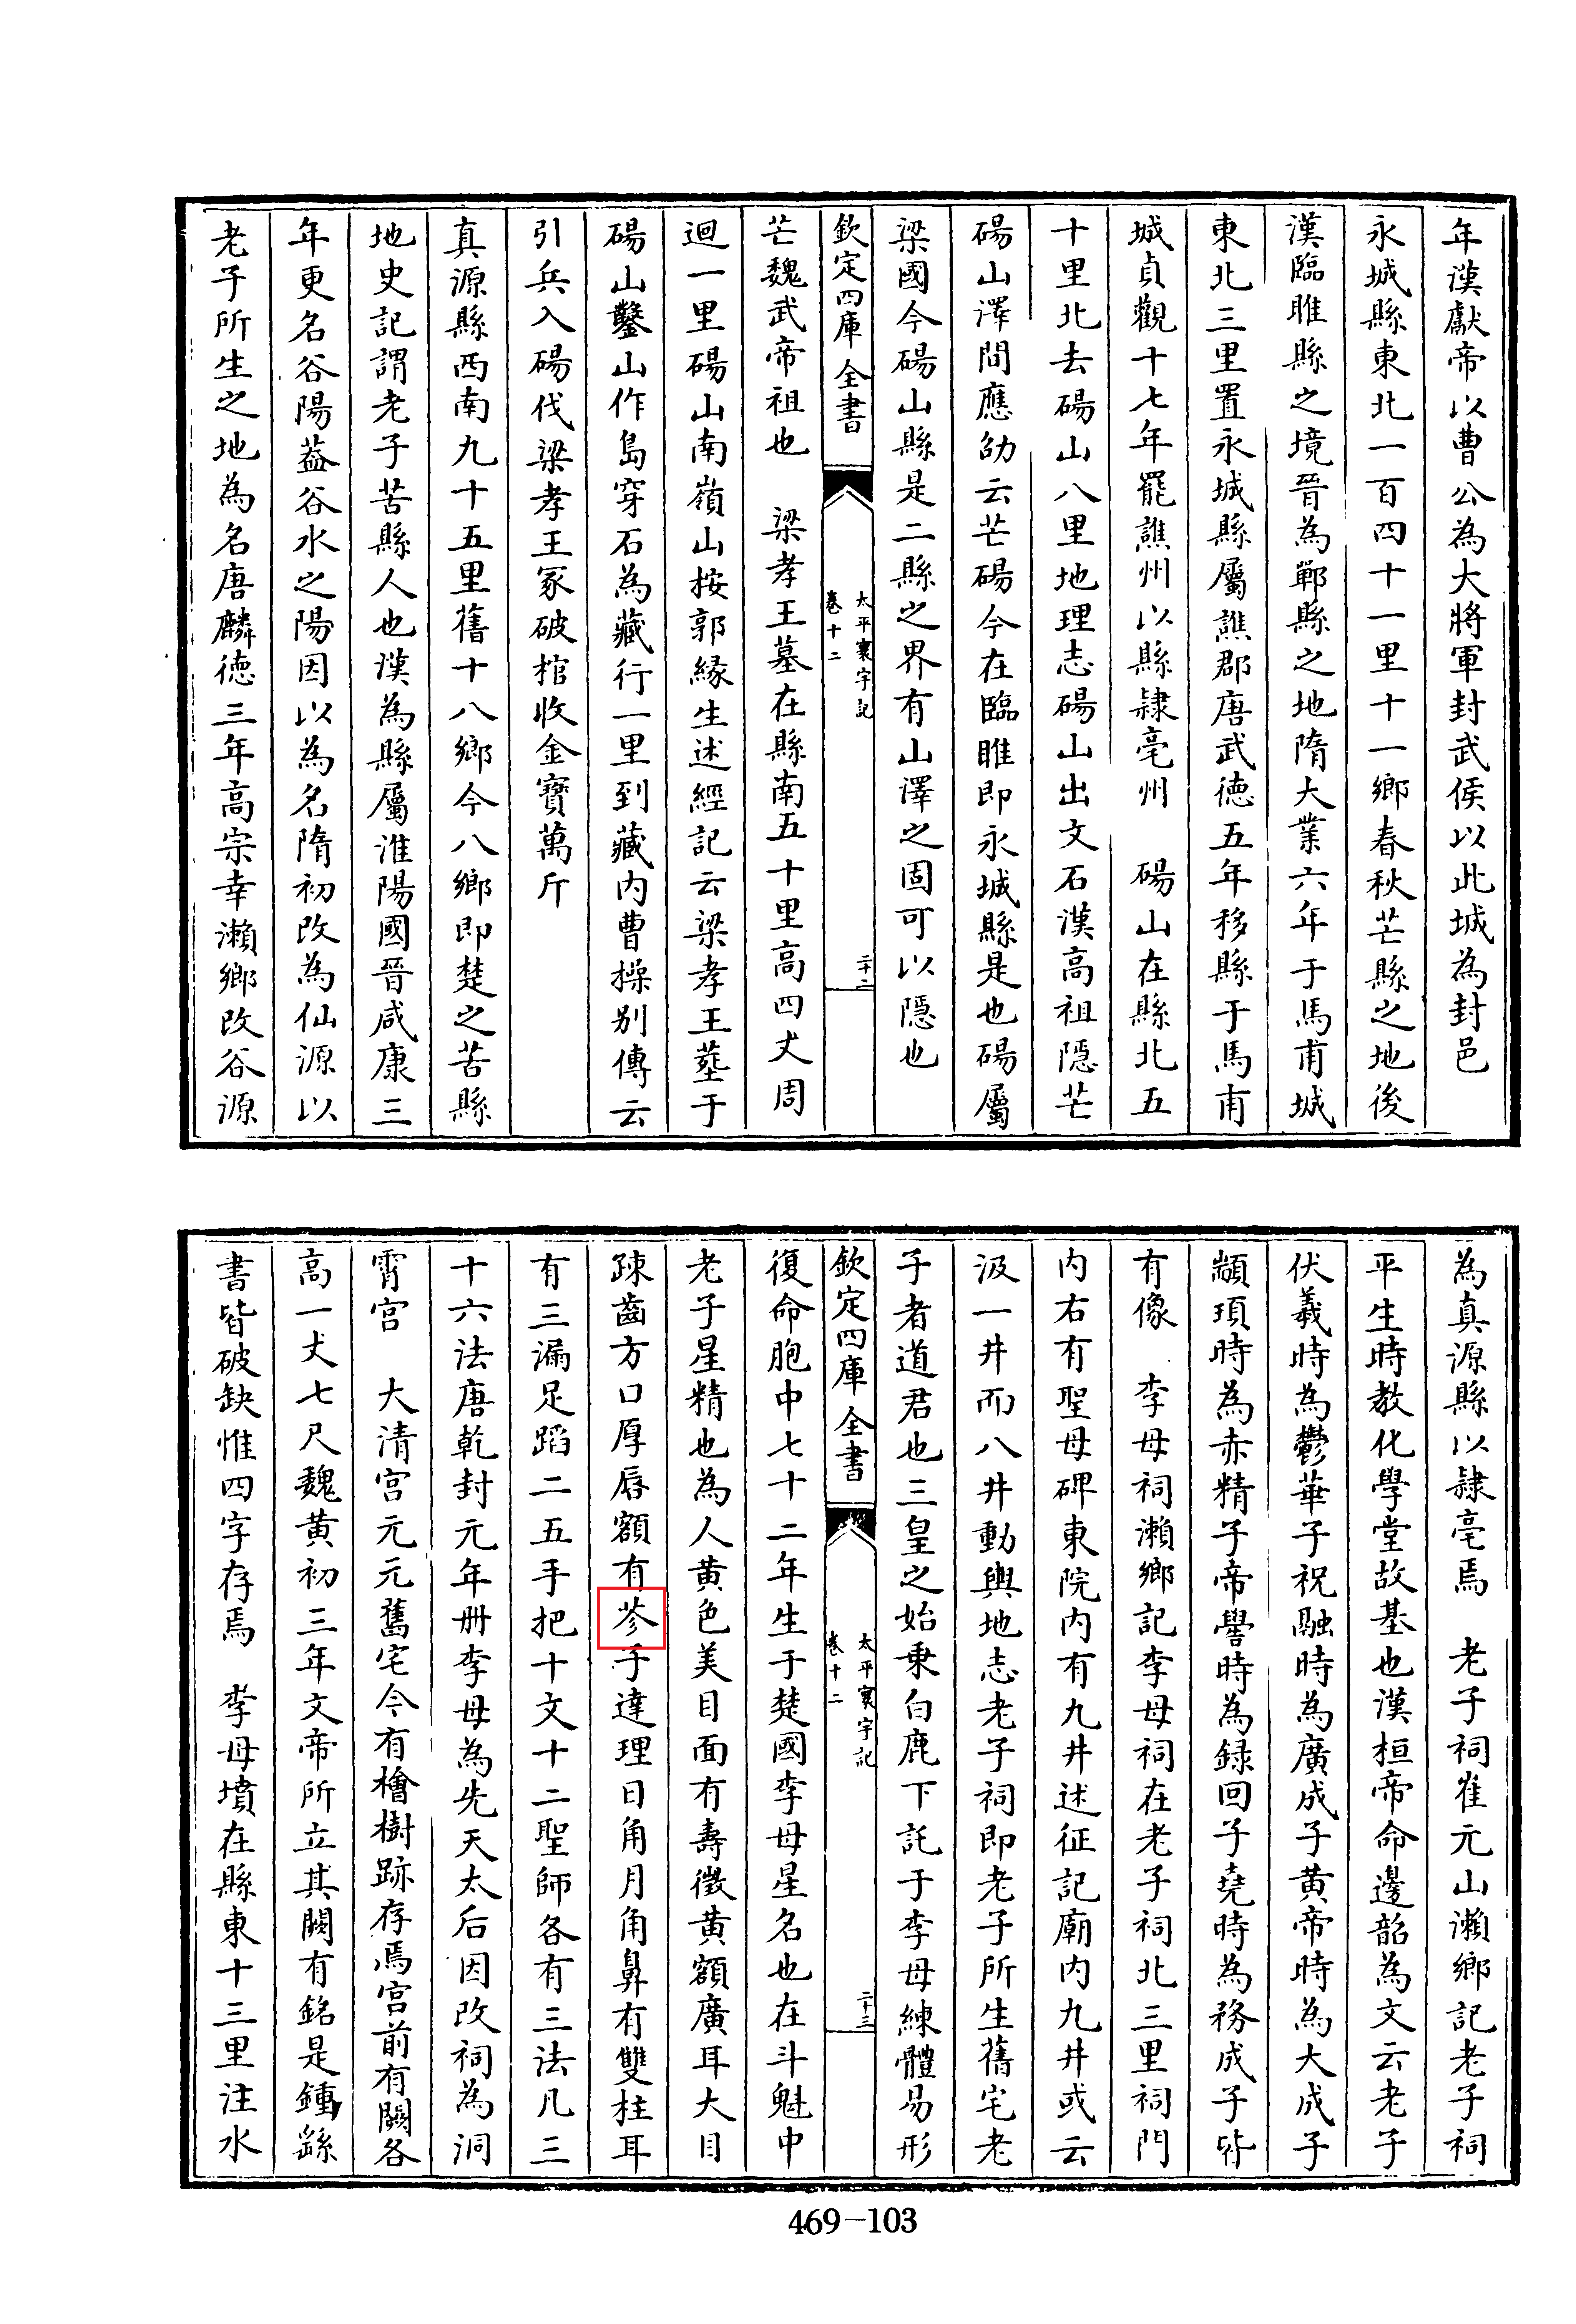 年漢獻帝以曹公為大將軍封武侯以此城為封邑
永城縣東北一百四十一里十一鄉春秋芒縣之地後
漢臨睢縣之境晉為鄲縣之地隋大業六年于馬甫城
東北三里置永城縣屬譙郡唐武徳五年移縣于馬甫
城貞觀十七年罷譙州以縣隸亳州　碭山在縣北五
十里北去碭山八里地理志碭山出文石漢高祖隠芒
碭山澤間應劭云芒碭今在臨睢即永城縣是也碭屬
梁國今碭山縣是二縣之界有山澤之固可以隱也
欽定四庫全書
太平寰宇記
卷十二
二十二
芒魏武帝祖也　梁孝王墓在縣南五十里高四丈周
迴一里碭山南嶺山按郭緣生述經記云梁孝王塟于
碭山鑿山作島穿石為藏行一里到藏内曹操别傳云
引兵入碭伐梁孝王冡破棺收金寳萬斤
真源縣西南九十五里舊十八鄉今八鄉即楚之苦縣
地史記謂老子苦縣人也漢為縣屬淮陽國晉咸康三
年更名谷陽葢谷水之陽因以為名隋初改為仙源以
老子所生之地為名唐麟徳三年高宗幸瀨鄉改谷源
為真源縣以隸亳焉　老子祠崔元山瀨鄉記老子祠
平生時教化學堂故基也漢桓帝命邊韶為文云老子
伏羲時為鬱華子祝融時為廣成子黄帝時為大成子
顓頊時為赤精子帝嚳時為録回子堯時為務成子皆
有像　李母祠瀨鄉記李母祠在老子祠北三里祠門
内右有聖母碑東院内有九井述征記廟内九井或云
汲一井而八井動輿地志老子祠即老子所生舊宅老
子者道君也三皇之始乗白鹿下託于李母練體易形
欽定四庫全書
太平寰宇記
卷十二
二十三
復命胞中七十二年生于楚國李母星名也在斗魁中
老子星精也為人黄色美目面有壽徴黄額廣耳大目
疎齒方口厚唇額有𠫵子達理日角月角鼻有雙柱耳
有三漏足蹈二五手把十文十二聖師各有三法凡三
十六法唐乾封元年册李母為先天太后因改祠為洞
霄宫　大清宫元元舊宅今有檜樹跡存焉宫前有闕各
高一丈七尺魏黄初三年文帝所立其闕有銘是鍾繇
書皆破缺惟四字存焉　李母墳在縣東十三里注水
469-103